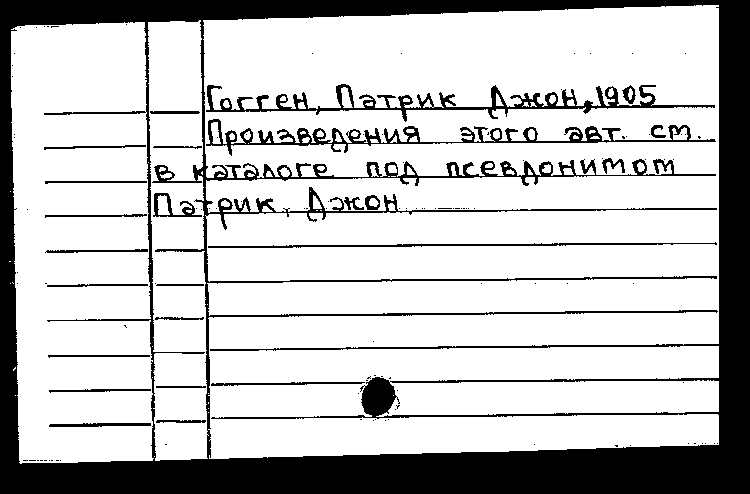 Гогген, Патрик Джон, 1905
Произведения этого авт. см.
в каталоге под псевдонимом
Патрик, Джон.